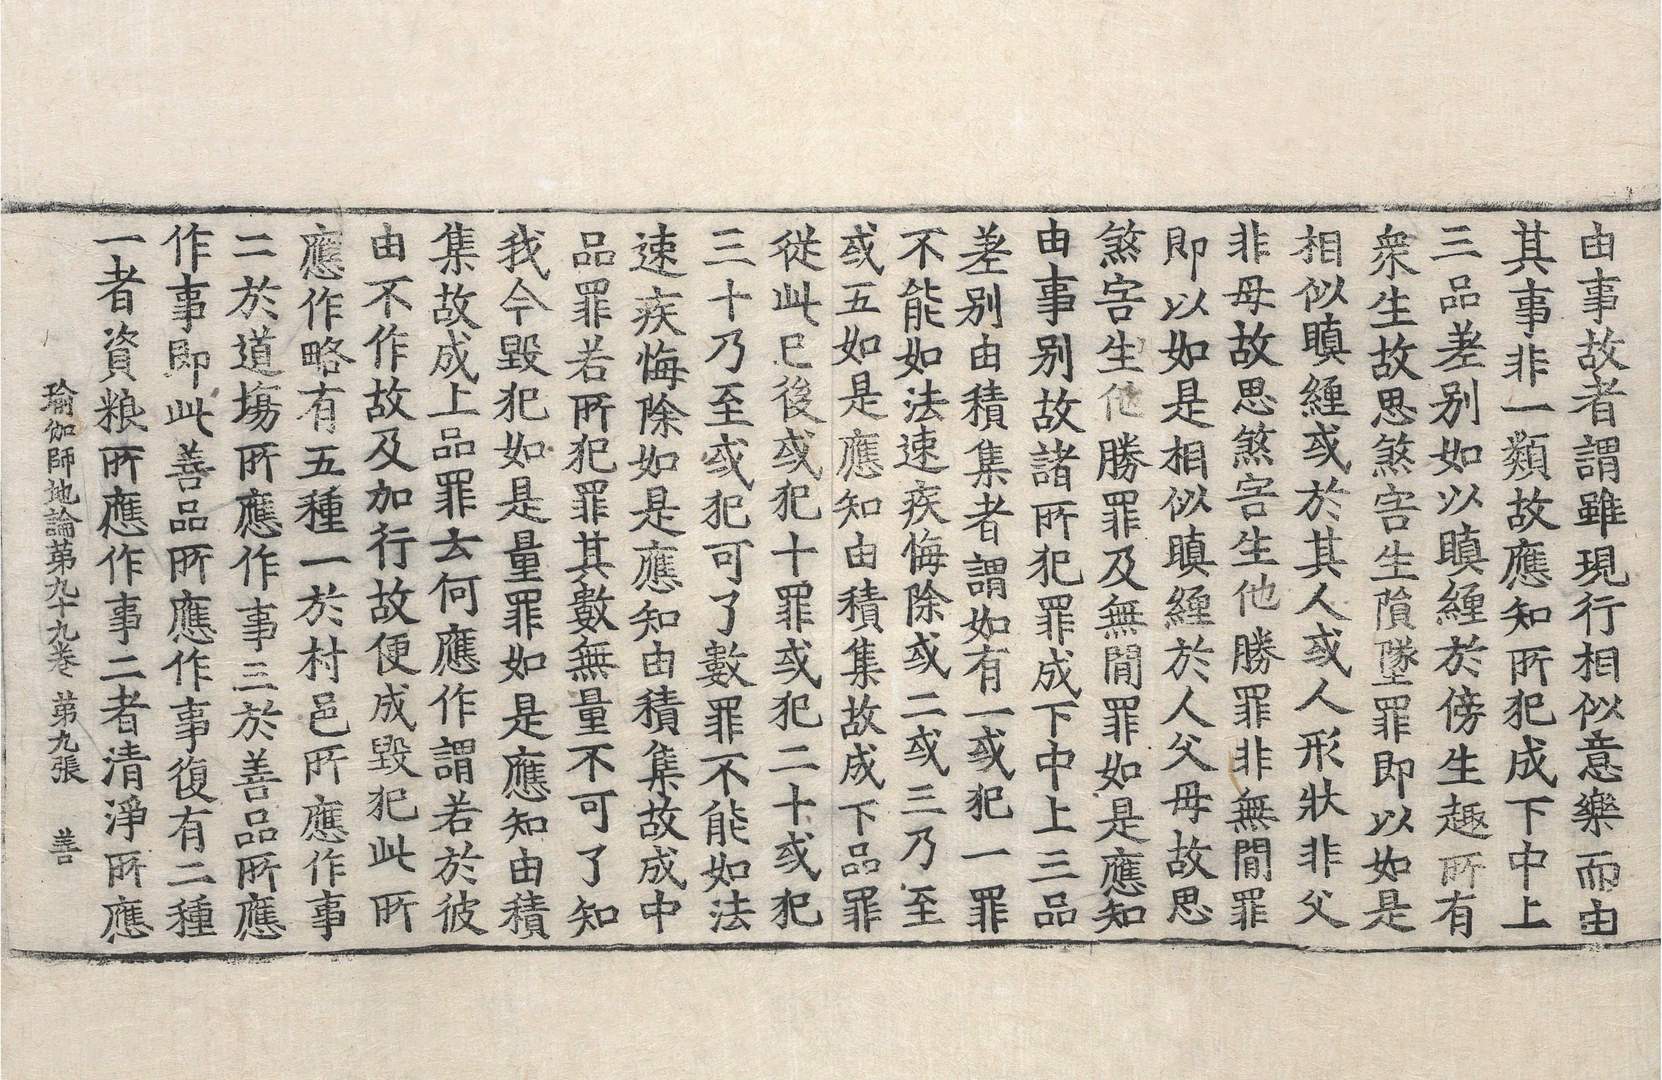 由事故者謂雖現行相似意樂而由
其事非一類故應知所犯成下中上
三品差別如以瞋纏於傍生趣所有
衆生故思煞害生隕墜罪即以如是
相似瞋纏或於其人或人形狀非父
非母故思煞害生他勝罪非無間罪
即以如是相似瞋纏於人父母故思
煞害生他勝罪及無間罪如是應知
由事別故諸所犯罪成下中上三品
差別由積集者謂如有一或犯一罪
不能如法速疾悔除或二或三乃至
或五如是應知由積集故成下品罪
從此已後或犯十罪或犯二十或犯
三十乃至或犯可了數罪不能如法
速疾悔除如是應知由積集故成中
品罪若所犯罪其數無量不可了知
我今毀犯如是量罪如是應知由積
集故成上品罪云何應作謂若於彼
由不作故及加行故便成毀犯此所
應作略有五種一於村邑所應作事
二於道塲所應作事三於善品所應
作事即此善品所應作事復有二種
一者資粮所應作事二者清淨所應
瑜伽師地論第九十九卷 第九張 善